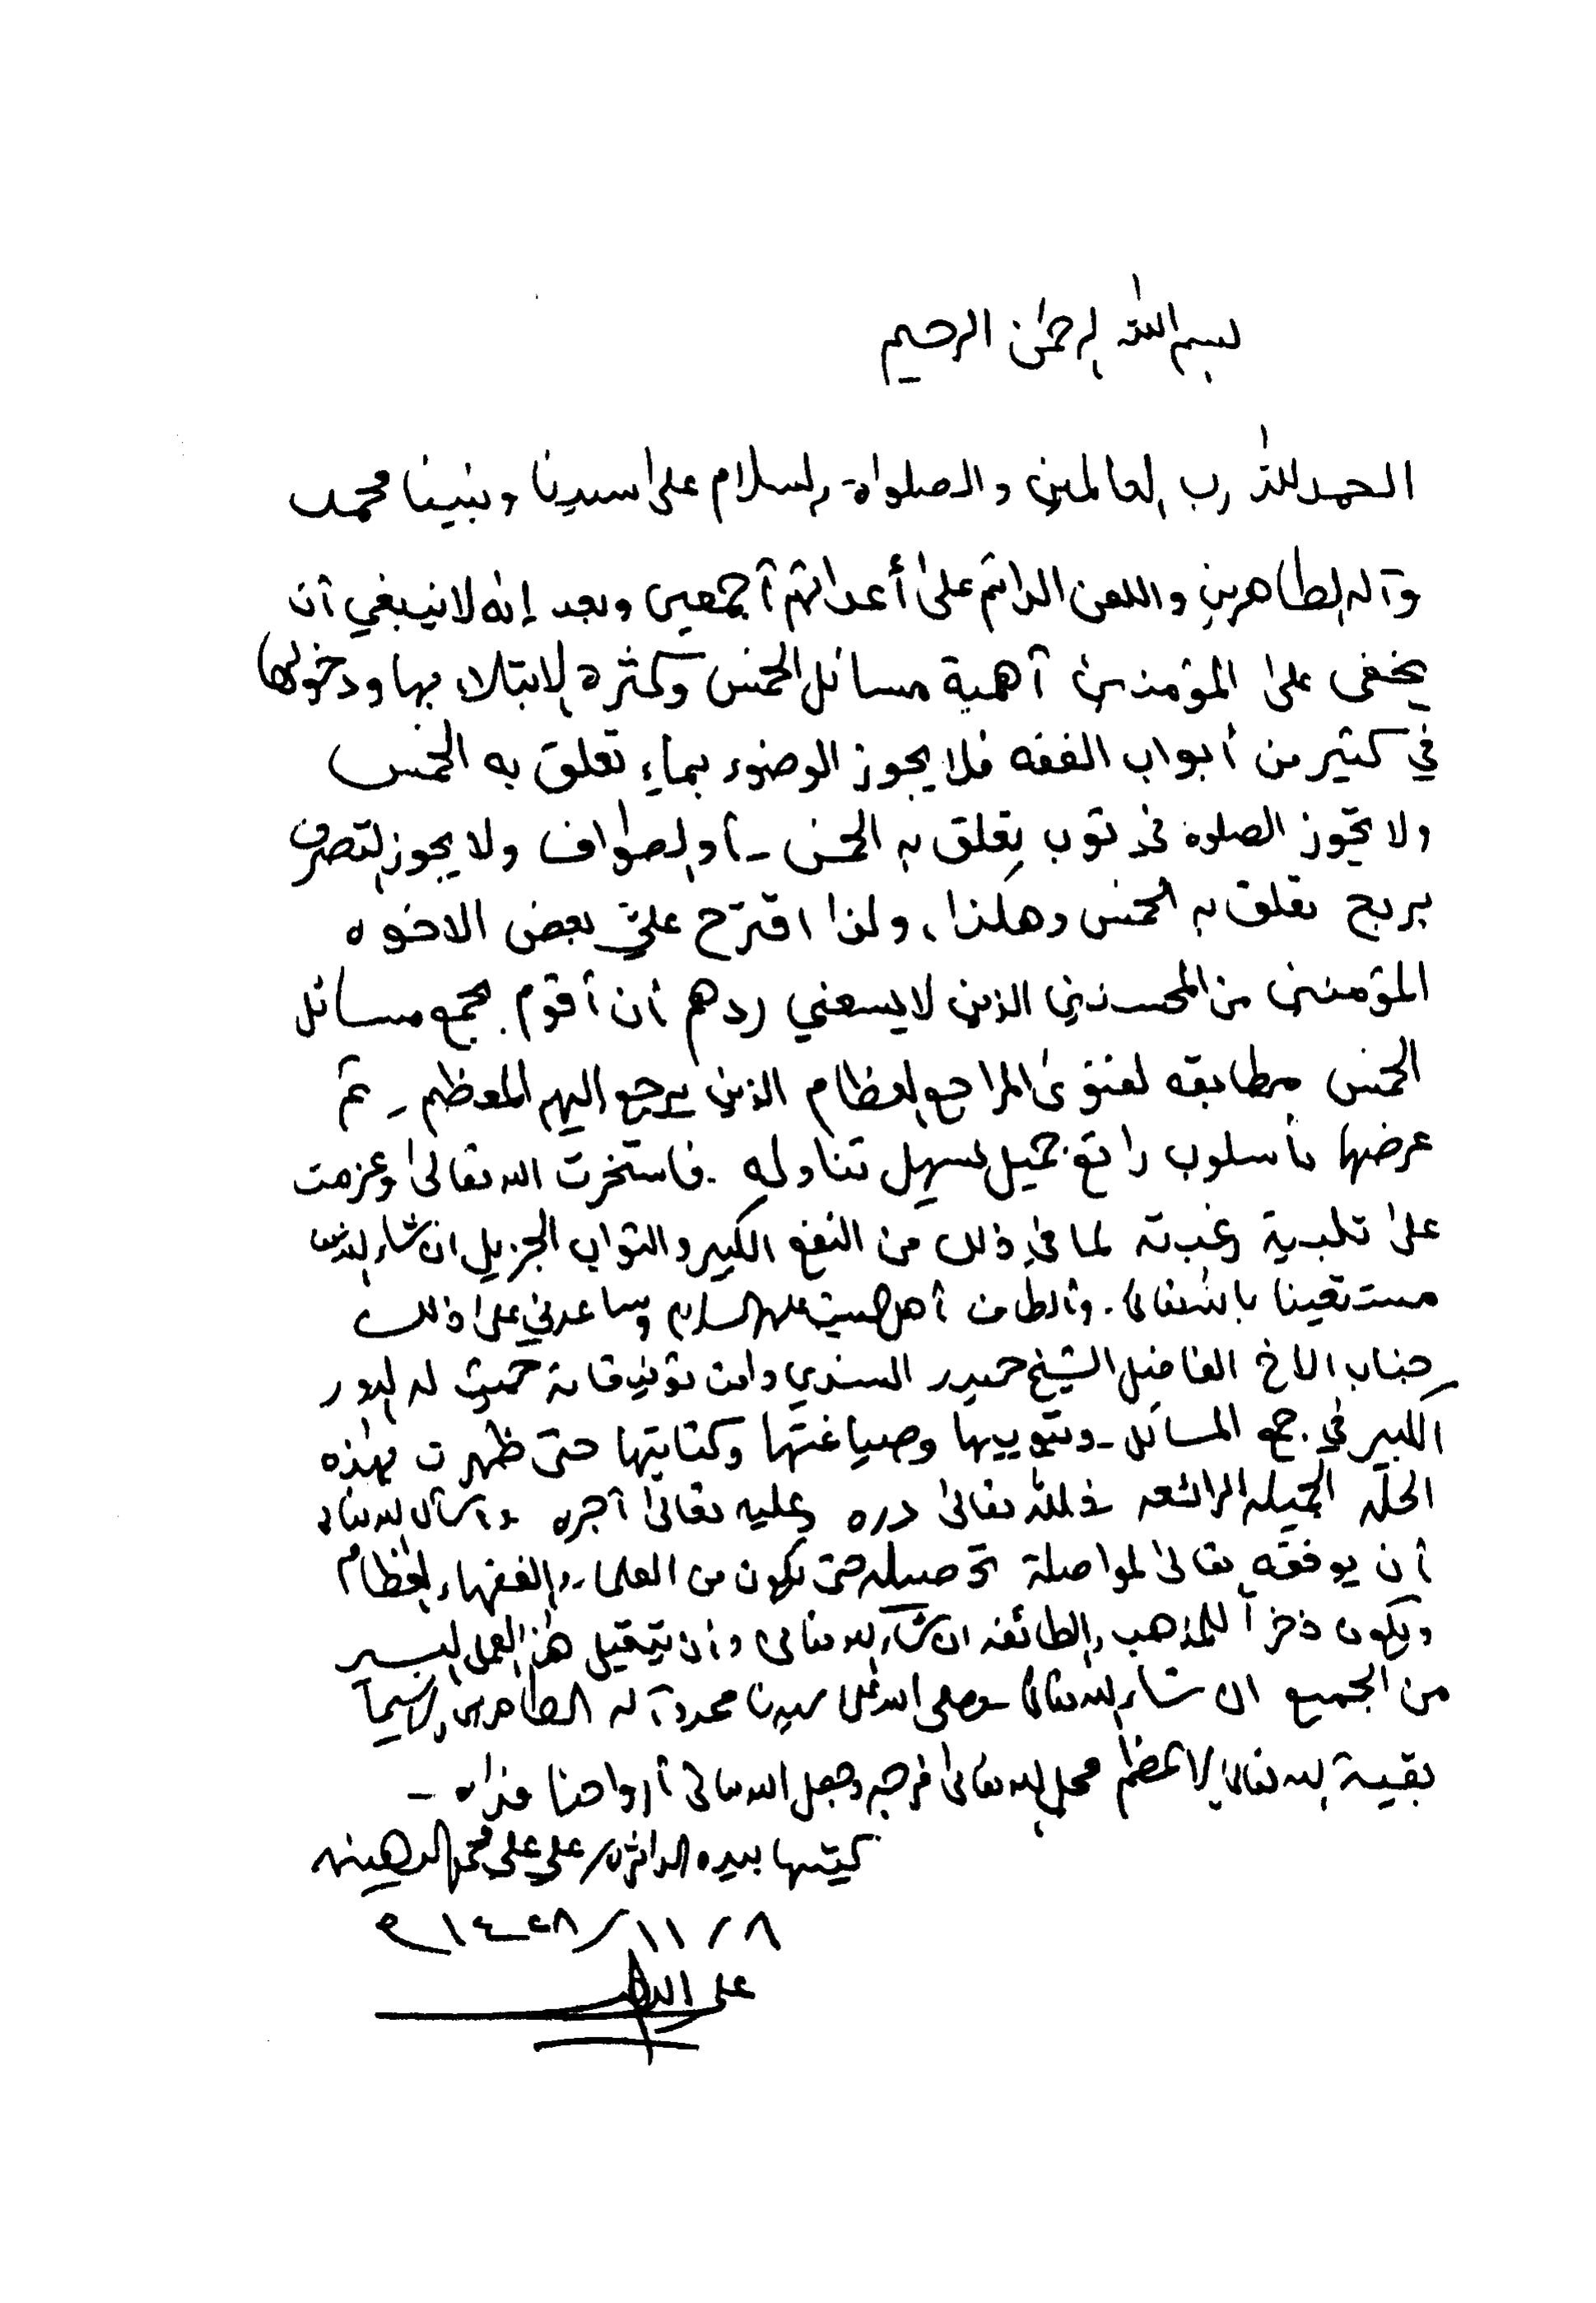 بسم الله الرحمٰن الرحيم
الحمد لله رب العالمين والصلواة والسلام علىٰ سيدنا ونبينا محمد
وآله الطاهرين واللعن الدائم علىٰ أعدائهم أجمعين وبعد إنه لا ينبغي أن
يخفى علىٰ المؤمنين أهمية مسائل الخمس وكثرة الابتلاء بها ودخولها
في كثير من أبواب الفقه فلا يجوز الوضوء بماءٍ تعلق به الخمس
ولا تجوز الصلوة في ثوب تعلق به الخمس - أو الطواف ولا يجوز التصرف
بربح تعلق به الخمس وهكذا، ولذا اقترح عليّ بعض الاخوه
المؤمنين من المحسنين الذين لا يسعني ردهم أن أقوم بجمع مسائل
الخمس مطابقه لفتوىٰ المراجع العظام الذين يرجع اليهم المعظم - ثم
عرضها بأسلوب رائع جميل يسهل تناوله . فاستخرت الله تعالىٰ وعزمت
علىٰ تلبية رغبته لما في ذلك من النفع الكبير والثواب الجزيل ان شاء الله
مستعينا بالله تعالىٰ . وألطاف أهل البيت عليهم السلام وساعدني علىٰ ذلك
جناب الاخ الفاضل الشيخ حيدر السندي دامت توفيقاته حيث له الدور
الكبير في جمع المسائل - وتبويبها وصياغتها وكتابتها حتىٰ ظهرت بهذه
الحلّه الجميله الرائعه فلله تعالىٰ دره وعليه تعالىٰ أجره وأسأل الله تعالىٰ
أن يوفقه تعالىٰ لمواصلة تحصيله حتىٰ يكون من العلماء والفقهاء العظام
ويكون ذخراً للمذهب والطائفه ان شاء الله تعالىٰ وأن يتقبل هذا العمل اليسير
من الجميع ان شاء الله تعالىٰ وصلى الله علىٰ سيدنا محمد وآله الطاهرين لا سيما
بقية الله تعالىٰ الاعظم عجل الله تعالىٰ فرجه وجعل الله تعالىٰ أرواحنا فداه -
كتبها بيده الداثره علي علي محمد الدهنين
٨ / ١١ / ١٤٢٨هـ
علي الدهنين